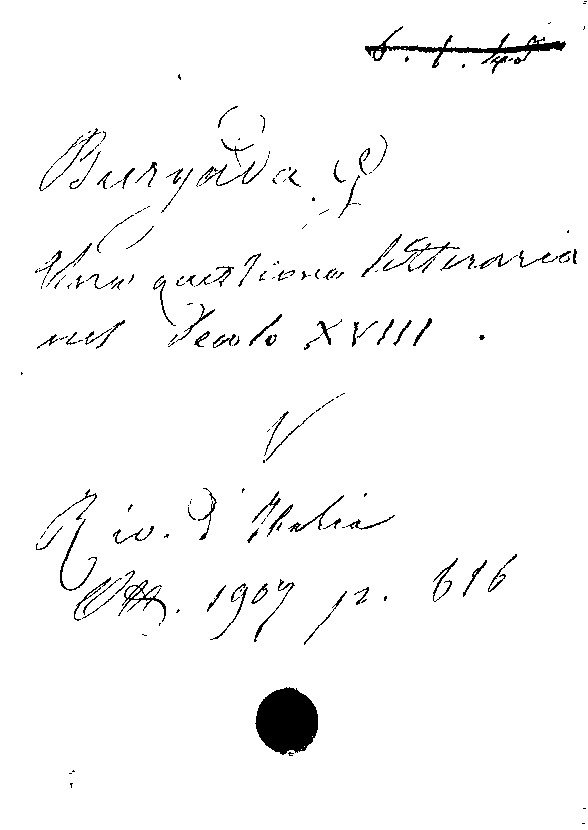 6. 1. 45
Burgada G
Una questione letteraria
nel secolo XVIII.
V
Riv. d'Italia
Ott. 1907 p. 616